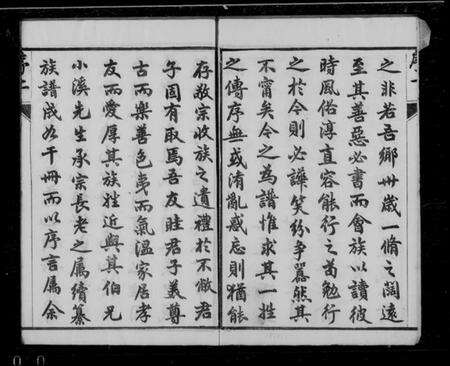 之非若吾鄉卅歲一脩之闊遠
至其善惡必書而會族以讀彼
時風俗淳直容能行之茍勉行
之於今則必譁笑紛爭囂然其
不甯矣今之為譜惟求其一姓
之傳序無或淆亂惑忘則猶能
存敬宗收族之遺禮於不敝君
子固有取焉吾友眭君子美尊
古而樂善色夷而氣溫家居孝
友而愛厚其族姓近與其伯兄
小溪先生承宗長老之屬續纂
族譜成如干冊而以序言屬余